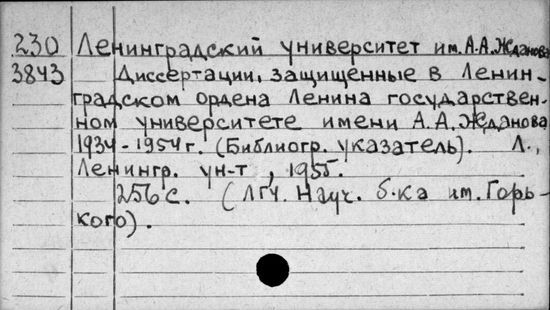 230 Ленинградский университет им. А.А. Жданова
3843 Диссертации, защищенные в Ленин-
градском ордена Ленина государствен-
ном университете имени А.А. Жданова
1934-1954г. (Библиогр. указатель). Л.,
Ленингр. ун-т, 1955.
256 с. (ЛГУ. Науч. б-ка им. Горь-
кого).